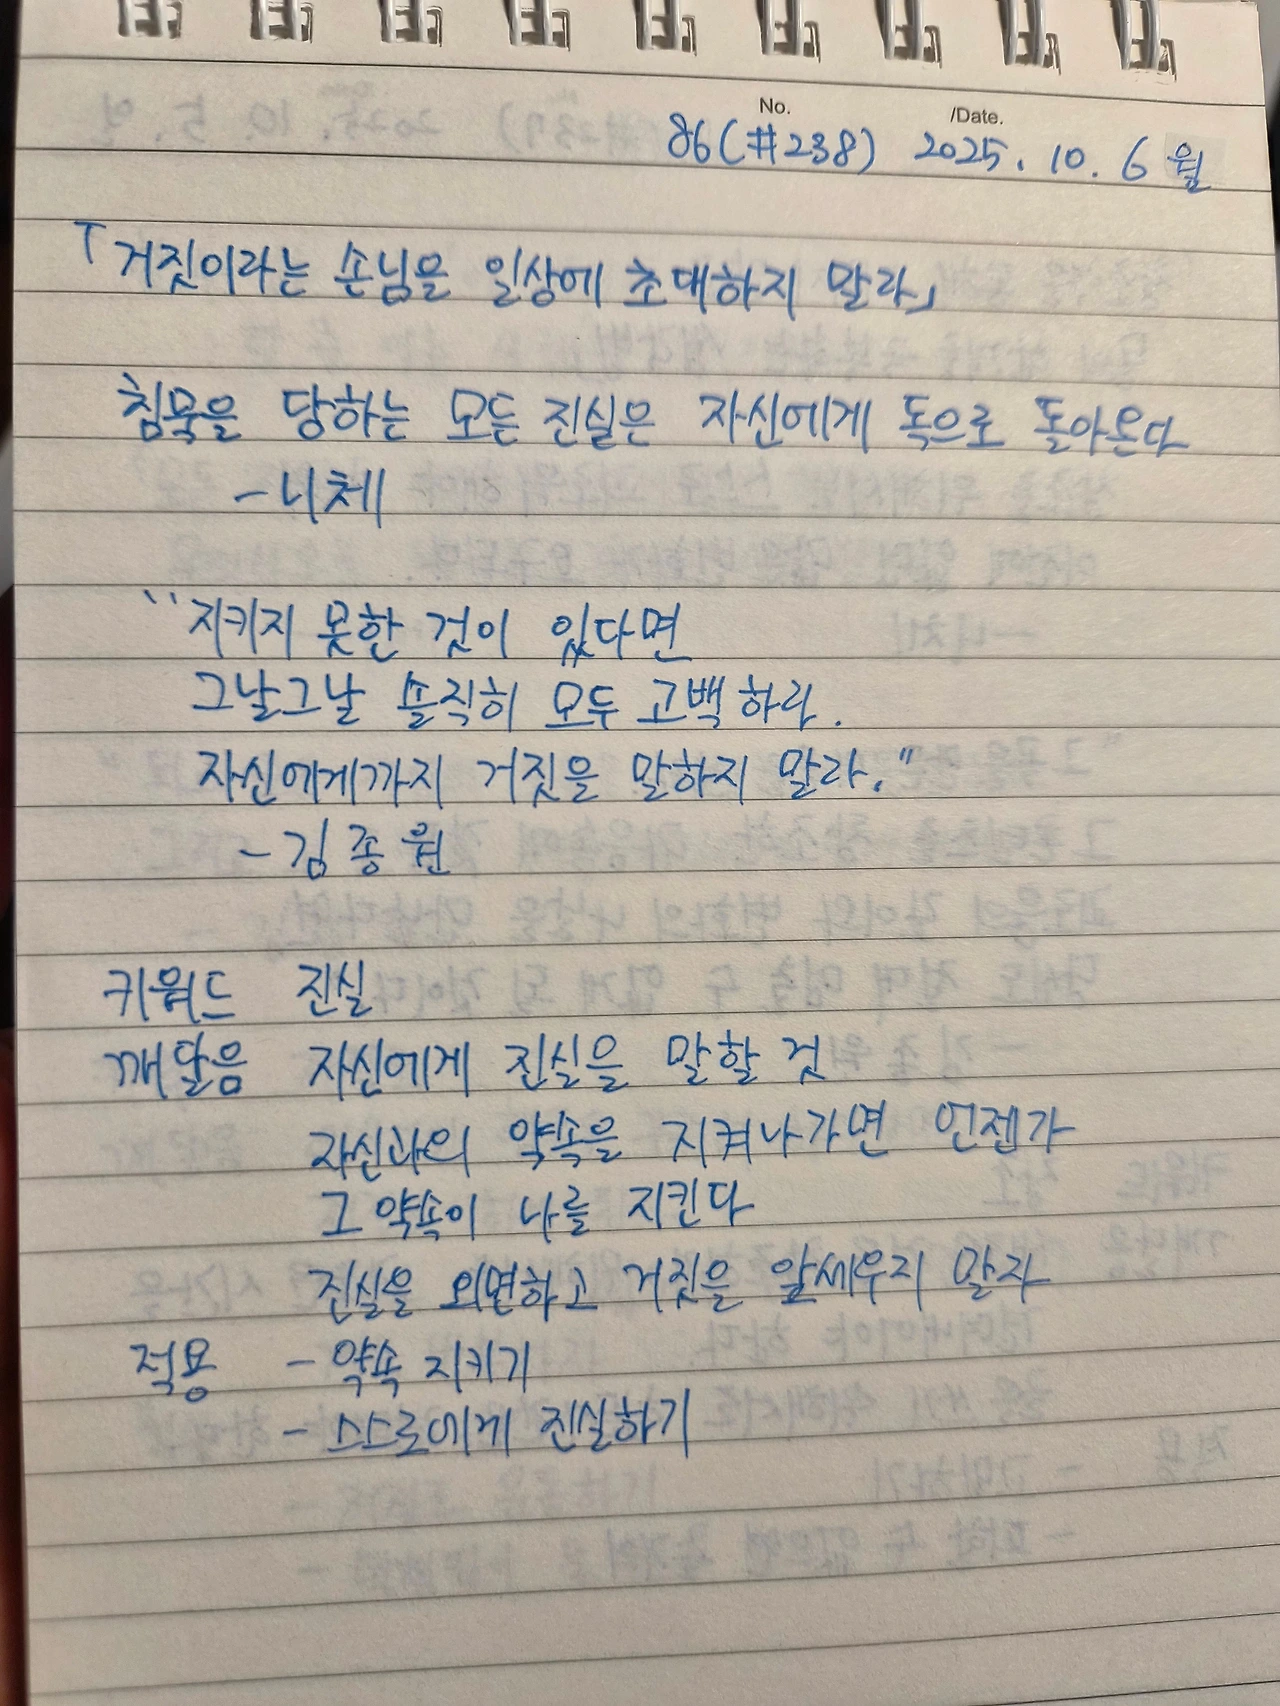 No. /Date.
86(#238) 2025. 10. 6 월
「거짓이라는 손님을 일상에 초대하지 말라」
침묵을 당하는 모든 진실은 자신에게 독으로 돌아온다
-니체
"지키지 못한 것이 있다면
그날그날 솔직히 모두 고백하라.
자신에게까지 거짓을 말하지 말라."
-김종원
키워드 진실
깨달음 자신에게 진실을 말할 것
자신과의 약속을 지켜나가면 언젠가
그 약속이 나를 지킨다
진실을 외면하고 거짓을 앞세우지 말자
적용 - 약속 지키기
- 스스로에게 진실하기